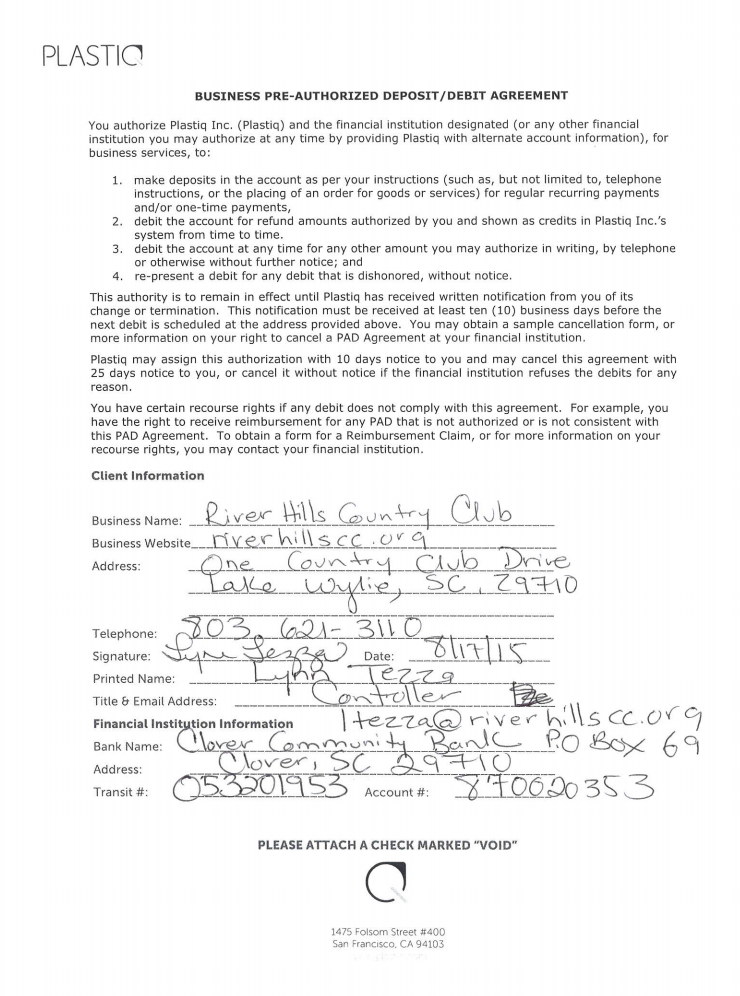 PLASTIQ
BUSINESS PRE-AUTHORIZED DEPOSIT/DEBIT AGREEMENT
You authorize Plastiq Inc. (Plastiq) and the financial institution designated (or any other financial
institution you may authorize at any time by providing Plastiq with alternate account information), for
business services, to:
1. make deposits in the account as per your instructions (such as, but not limited to, telephone
instructions, or the placing of an order for goods or services) for regular recurring payments
and/or one-time payments,
2. debit the account for refund amounts authorized by you and shown as credits in Plastiq Inc.'s
system from time to time.
3. debit the account at any time for any other amount you may authorize in writing, by telephone
or otherwise without further notice; and
4. re-present a debit for any debit that is dishonored, without notice.
This authority is to remain in effect until Plastiq has received written notification from you of its
change or termination. This notification must be received at least ten (10) business days before the
next debit is scheduled at the address provided above. You may obtain a sample cancellation form, or
more information on your right to cancel a PAD Agreement at your financial institution.
Plastiq may assign this authorization with 10 days notice to you and may cancel this agreement with
25 days notice to you, or cancel it without notice if the financial institution refuses the debits for any
reason.
You have certain recourse rights if any debit does not comply with this agreement. For example, you
have the right to receive reimbursement for any PAD that is not authorized or is not consistent with
this PAD Agreement. To obtain a form for a Reimbursement Claim, or for more information on your
recourse rights, you may contact your financial institution.
Client Information
Business Name: River Hills Country Club
Business Website riverhillscc.org
Address: One Country Club Drive
Lake Wylie, SC, 29710
Telephone: 803. 621-3110
Signature: Lynn Tezza Date: 8/17/15
Printed Name: Lynn Tezza
Title & Email Address: Controller
ltezza@riverhillscc.org
Financial Institution Information
Bank Name: Clover Community Bank P.O Box 69
Address: Clover, SC 29710
Transit #: 053201953 Account #: 870620353
PLEASE ATTACH A CHECK MARKED "VOID"
1475 Folsom Street #400
San Francisco, CA 94103